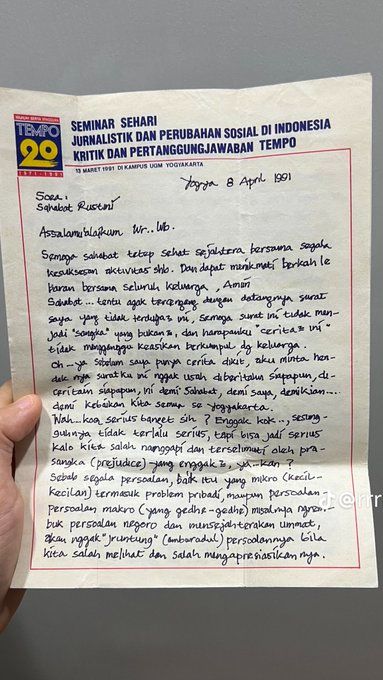 MAJALAH BERITA MINGGUAN
TEMPO
20
1971-1991
SEMINAR SEHARI
JURNALISTIK DAN PERUBAHAN SOSIAL DI INDONESIA
KRITIK DAN PERTANGGUNGJAWABAN TEMPO
13 MARET 1991 DI KAMPUS UGM YOGYAKARTA
Yogya 8 April 1991
Sahabat Rustini
Assalamu'alaikum Wr. Wb.
Semoga sahabat tetep sehat sejahtera bersama segala
kesuksesan aktivitas shb. Dan dapat menikmati berkah le
baran bersama seluruh keluarga, Amin
Sahabat... tentu agak tercengang dengan datangnya surat
saya yang tidak terduga2 ini, semoga surat ini tidak men-
jadi "sangka" yang bukan2, dan harapanku "cerita2 ini"
tidak mengganggu keasikan berkumpul dg keluarga.
Oh -- ya sebelum saya punya cerita dikit, aku minta hen-
dak nya surat ku ini nggak usah diberitahu siapapun, di-
ceritain siapapun, ini demi sahabat, demi saya, demikian....
demi kebaikan kita semua se-yogyakarta.
Wah.. koq serius banget sih? Enggak kok.., sesung-
guhnya tidak terlalu serius, tapi bisa jadi serius
kalo kita salah nanggapi dan terselimuti oleh pra-
sangka (prejudice) -yang enggak2, ya..kan?
Sebab segala persoalan, baik itu yang mikro (kecil-
kecilan) termasuk problem pribadi, maupun persoalan-
persoalan makro (yang gedhe-gedhe) misalnya ngrem-
buk persoalan negoro dan mensejahterakan ummat,
akan nggak "jruntung" (ambaradul) persoalannya bila
kita salah melihat dan salah mengapresiasikan nya.
@rrr